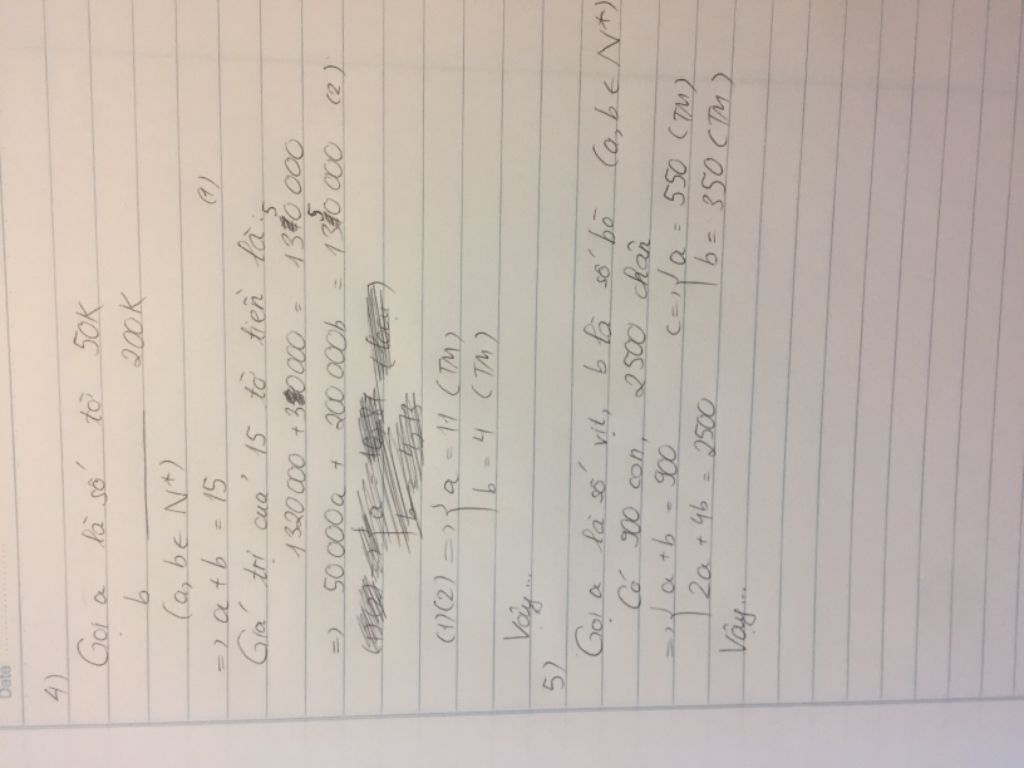 Date
4)
Gọi a là số tờ 50K
b ——— 200K
(a, b ∈ N*)
=> a + b = 15 (1)
Giá trị của 15 tờ tiền là
1320 000 + 30 000 = 1350 000
=> 50 000a + 200 000b = 1350 000 (2)
(1)(2) => { a = 11 (TM)
b = 4 (TM)
Vậy...
5)
Gọi a là số vịt, b là số bò (a, b ∈ N*)
Có 900 con, 2500 chân
=> { a + b = 900 <=> { a = 550 (TM)
2a + 4b = 2500 b = 350 (TM)
Vậy...